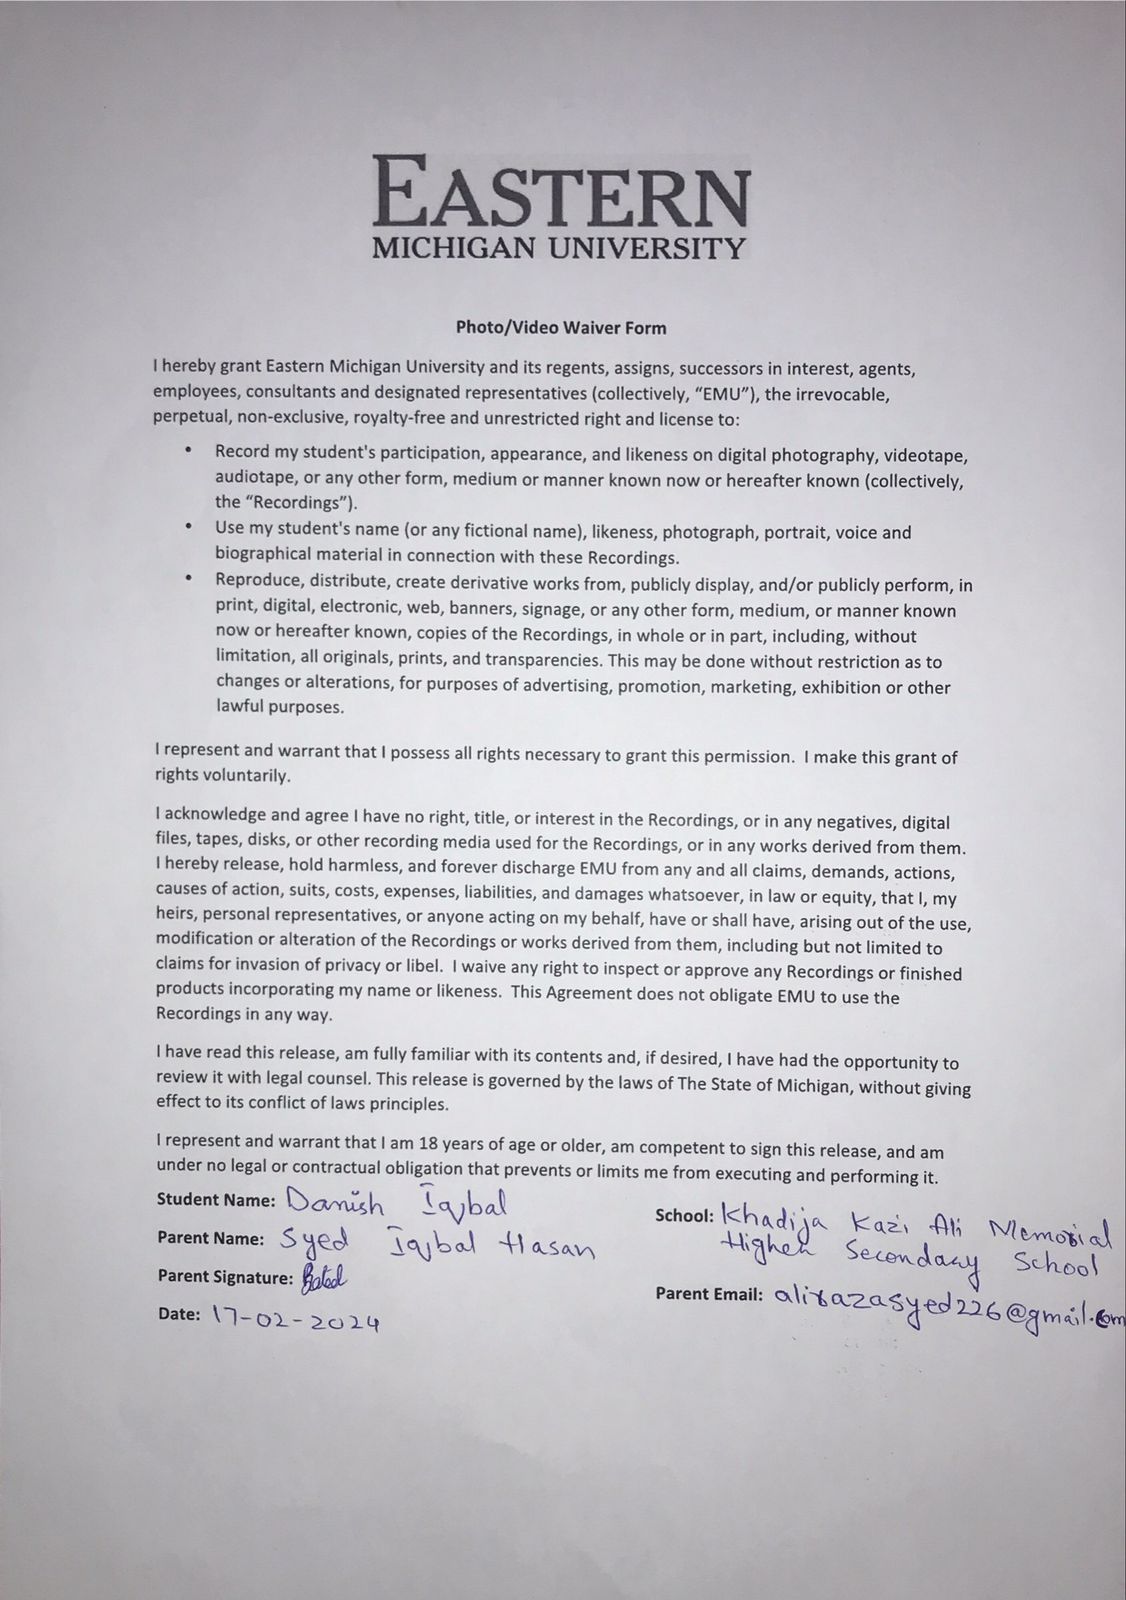 EASTERN
MICHIGAN UNIVERSITY
Photo/Video Waiver Form
I hereby grant Eastern Michigan University and its regents, assigns, successors in interest, agents,
employees, consultants and designated representatives (collectively, “EMU”), the irrevocable,
perpetual, non-exclusive, royalty-free and unrestricted right and license to:
• Record my student's participation, appearance, and likeness on digital photography, videotape,
audiotape, or any other form, medium or manner known now or hereafter known (collectively,
the “Recordings”).
• Use my student's name (or any fictional name), likeness, photograph, portrait, voice and
biographical material in connection with these Recordings.
• Reproduce, distribute, create derivative works from, publicly display, and/or publicly perform, in
print, digital, electronic, web, banners, signage, or any other form, medium, or manner known
now or hereafter known, copies of the Recordings, in whole or in part, including, without
limitation, all originals, prints, and transparencies. This may be done without restriction as to
changes or alterations, for purposes of advertising, promotion, marketing, exhibition or other
lawful purposes.
I represent and warrant that I possess all rights necessary to grant this permission. I make this grant of
rights voluntarily.
I acknowledge and agree I have no right, title, or interest in the Recordings, or in any negatives, digital
files, tapes, disks, or other recording media used for the Recordings, or in any works derived from them.
I hereby release, hold harmless, and forever discharge EMU from any and all claims, demands, actions,
causes of action, suits, costs, expenses, liabilities, and damages whatsoever, in law or equity, that I, my
heirs, personal representatives, or anyone acting on my behalf, have or shall have, arising out of the use,
modification or alteration of the Recordings or works derived from them, including but not limited to
claims for invasion of privacy or libel. I waive any right to inspect or approve any Recordings or finished
products incorporating my name or likeness. This Agreement does not obligate EMU to use the
Recordings in any way.
I have read this release, am fully familiar with its contents and, if desired, I have had the opportunity to
review it with legal counsel. This release is governed by the laws of The State of Michigan, without giving
effect to its conflict of laws principles.
I represent and warrant that I am 18 years of age or older, am competent to sign this release, and am
under no legal or contractual obligation that prevents or limits me from executing and performing it.
Student Name: Danish Iqbal
Parent Name: Syed Iqbal Hasan
Parent Signature:
Date: 17-02-2024
School: Khadija Kazi Ali Memorial
Higher Secondary School
Parent Email: alirazasyed226@gmail.com